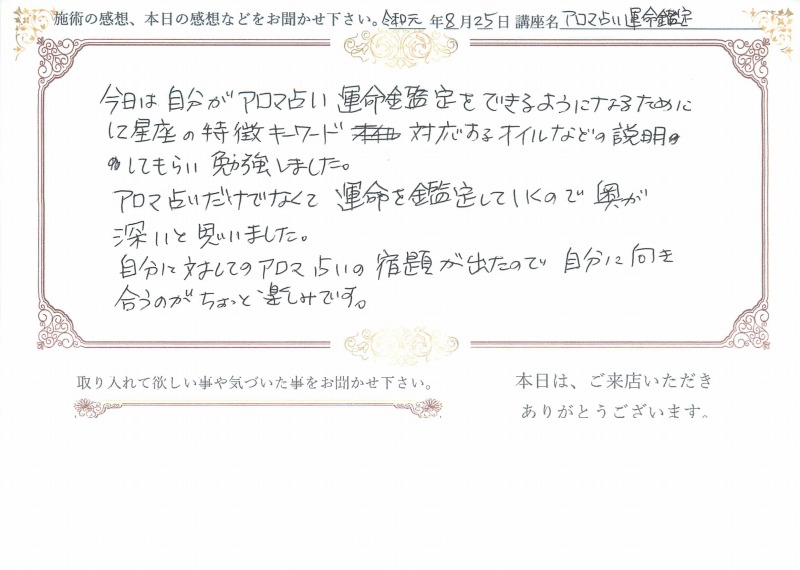 施術の感想、本日の感想などをお聞かせ下さい。令和元年8月25日 講座名 アロマ占い 運命鑑定
今日は自分がアロマ占い 運命鑑定をできるようになるために
12星座の特徴 キーワード 対応するオイルなどの説明
をしてもらい 勉強しました。
アロマ占いだけでなくて 運命を鑑定していくので 奥が
深いと思いました。
自分に対してのアロマ占いの宿題が出たので 自分に向き
合うのがちょっと楽しみです。
取り入れて欲しい事や気づいた事をお聞かせ下さい。
本日は、ご来店いただき
ありがとうございます。